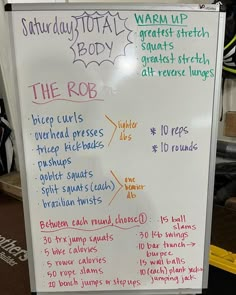 Saturday TOTAL BODY
WARM UP
greatest stretch
squats
greatest stretch
alt reverse lunges
THE ROB
· bicep curls
· overhead presses
· tricep kickbacks
lighter dbs
· pushups
· goblet squats
· split squats (each)
· brazilian twists
one heavier db
* 10 reps
* 10 rounds
Between each round, choose ①
· 30 trx jump squats
· 5 bike calories
· 5 rower calories
· 50 rope slams
· 20 bench jumps or stepups
· 15 ball slams
· 30 kb swings
· 10 bar trunch → burpee
· 15 wall balls
· 10 (each) plank jacks
jumping jack